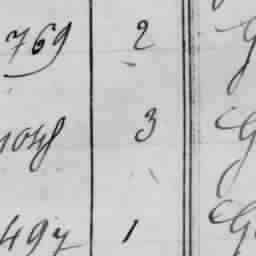 769 2 G
1048 3 G
497 1 G